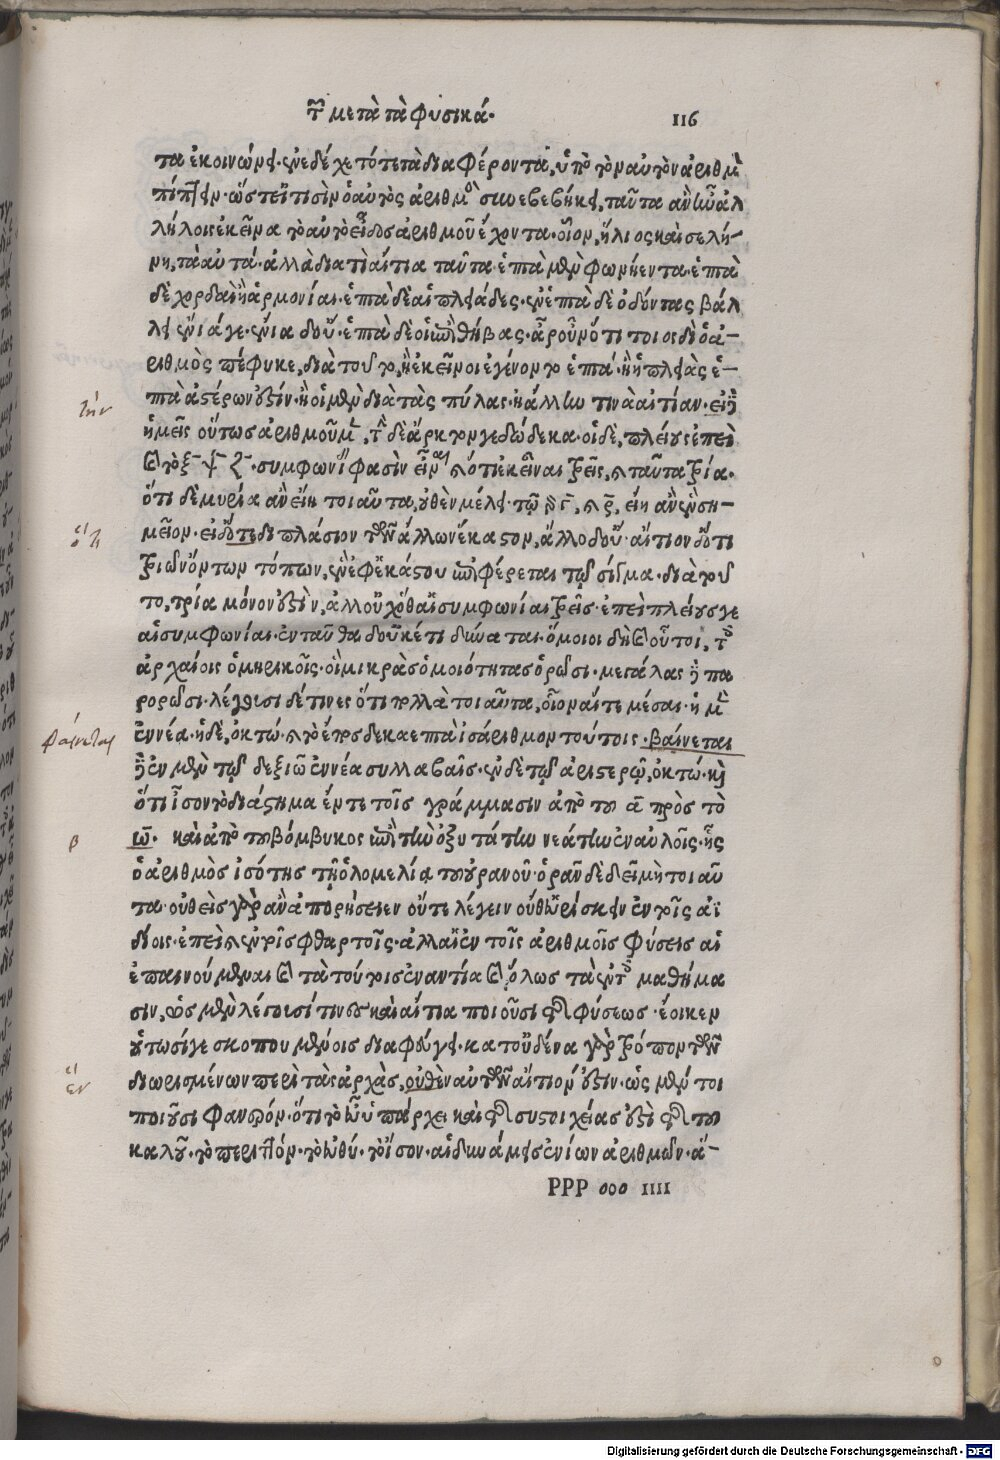 τῶν μετὰ τὰ φυσικά.
116
τα ἐκοινώνει. ἐνεδέχετό τε τὰ διαφέροντα, ὑπὸ τὸν αὐτὸν ἀριθμὸν
πίπτειν. ὥστ' εἴ τισιν ὁ αὐτὸς ἀριθμὸς συμβεβήκει, ταῦτα ἂν ἦν ἀλ
λήλοις ἐκεῖνα τὸ αὐτὸ εἶδος ἀριθμοῦ ἔχοντα. οἷον, ἥλιος καὶ σελή-
νη, τὰ αὐτά. ἀλλὰ διὰ τί αἴτια ταῦτα. ἑπτὰ μὲν φωνήεντα. ἑπτὰ
δὲ χορδαὶ ἢ ἁρμονίαι. ἑπτὰ δὲ αἱ πλειάδες. ἐν ἑπτὰ δὲ ὀδόντας βάλ
λει ἔνιά γε. ἔνια δ' οὔ. ἑπτὰ δὲ οἱ ἐπὶ θήβας. ἆρ' οὖν ὅτι τοιοσδὶ ὁ ἀ-
ριθμὸς πέφυκε, διὰ τοῦτο, ἢ ἐκεῖνοι ἐγένοντο ἑπτά. ἢ ἡ πλειὰς ἑ-
πτὰ ἀστέρων ἐστίν. ἢ οἱ μὲν διὰ τὰς πύλας. ἢ ἄλλην τινὰ αἰτίαν.
τὴν
ἡμεῖς οὕτως ἀριθμοῦμεν, τὴν δὲ ἄρκτον γε δώδεκα. οἱ δὲ, πλείους ἐπεὶ
καὶ τὸ ξ ψ ζ. συμφωνίας φασὶν εἶναι, καὶ ὅτι ἐκεῖναι τρεῖς, καὶ ταῦτα τρία.
ὅτι δὲ μυρία ἂν εἴη τοιαῦτα, οὐθὲν μέλει. τῷ γὰρ γ, καὶ ρ, εἴη ἂν ἓν ση-
εἰ
ὅτι
μεῖον. εἰ δ' ὅτι διπλάσιον τῶν ἄλλων ἕκαστον, ἄλλο δ' οὔ. αἴτιον δ' ὅτι
τριῶν ὄντων τόπων, ἓν ἐφ' ἑκάστου ἐπιφέρεται τῷ σίγμα. διὰ τοῦ
το, τρία μόνον ἐστὶν, ἀλλ' οὐχ ὅτι αἱ συμφωνίαι τρεῖς. ἐπεὶ πλείους γε
αἱ συμφωνίαι. ἐνταῦθα δ' οὐκέτι δύναται. ὅμοιοι δὴ καὶ οὗτοι, τοῖς
ἀρχαίοις ὁμηρικοῖς. οἳ μικρὰς ὁμοιότητας ὁρῶσι. μεγάλας δὲ πα
ρορῶσι. λέγουσι δέ τινες ὅτι πολλὰ τοιαῦτα, οἷον αἵ τε μέσαι. ἡ μὲν
φαίνεται
ἐννέα. ἡ δὲ, ὀκτώ. καὶ τὸ ἔπος δεκαεπτὰ ἰσάριθμον τούτοις. βαίνεται
δὲ ἐν μὲν τῷ δεξιῷ ἐννέα συλλαβαῖς. ἐν δὲ τῷ ἀριστερῷ, ὀκτώ. καὶ
ὅτι ἴσον τὸ διάστημα ἔν τε τοῖς γράμμασιν ἀπὸ τοῦ α πρὸς τὸ
β
ω. καὶ ἀπὸ τοῦ βόμβυκος ἐπὶ τὴν ὀξυτάτην νεάτην ἐν αὐλοῖς. ἧς
ὁ ἀριθμὸς ἰσότης τῇ ὁλομελείᾳ τοῦ οὐρανοῦ. ὁρᾶν δὲ δεῖ μὴ τοιαῦ
τα. οὐθεὶς γὰρ ἂν ἀπορήσειεν οὔτε λέγειν οὔθ' εὑρίσκειν ἐν τοῖς ἀϊ
δίοις. ἐπεὶ καὶ ἐν τοῖς φθαρτοῖς. ἀλλ' αἱ ἐν τοῖς ἀριθμοῖς φύσεις αἱ
ἐπαινούμεναι καὶ τὰ τούτοις ἐναντία καὶ ὅλως τὰ ἐν τοῖς μαθήμα
σιν, ὡς μὲν λέγουσί τινες καὶ αἴτια ποιοῦσι τῆς φύσεως. ἔοικεν
οὑτωσί γε σκοπουμένοις διαφεύγειν. κατ' οὐδένα γὰρ τρόπον τῶν
εἰ
ἓν
διωρισμένων περὶ τὰς ἀρχάς, οὐθὲν αὐτῶν αἴτιόν ἐστιν. ὡς μέν τοι
ποιοῦσι φανερόν. ὅτι τὸ εὖ ὑπάρχει καὶ τῆς συστοιχείας ἐστὶ τῆς τοῦ
καλοῦ. τὸ περιττόν. τὸ εὐθύ. τὸ ἴσον. αἱ δυνάμεις ἐνίων ἀριθμῶν. ἅ-
PPP ooo IIII
Digitalisierung gefördert durch die Deutsche Forschungsgemeinschaft - DFG